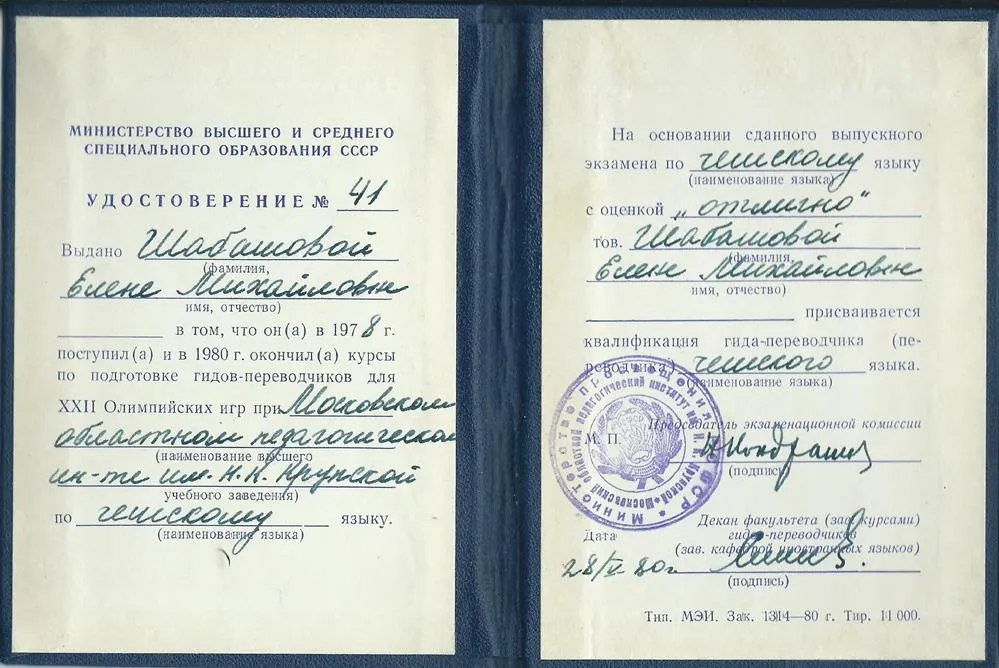 МИНИСТЕРСТВО ВЫСШЕГО И СРЕДНЕГО
СПЕЦИАЛЬНОГО ОБРАЗОВАНИЯ СССР
УДОСТОВЕРЕНИЕ № 41
Выдано Шабашовой
(фамилия,
Елене Михайловне
имя, отчество)
в том, что он(а) в 1978 г.
поступил(а) и в 1980 г. окончил(а) курсы
по подготовке гидов-переводчиков для
XXII Олимпийских игр при Московском
областном педагогическом
(наименование высшего
ин-те им. Н.К. Крупской
учебного заведения)
по чешскому языку.
(наименование языка)
На основании сданного выпускного
экзамена по чешскому языку
(наименование языка)
с оценкой „отлично"
тов. Шабашовой
(фамилия,
Елене Михайловне
имя, отчество)
присваивается
квалификация гида-переводчика (пе-
реводчика) чешского языка.
(наименование языка)
Председатель экзаменационной комиссии
М. П.
(подпись)
Декан факультета (зав. курсами)
гидов-переводчиков
Дата
(зав. кафедрой иностранных языков)
28/V 80г.
(подпись)
Тип. МЭИ. Зак. 1314—80 г. Тир. 11 000.
Министерство просвещения РСФСР
Московский областной педагогический институт им. Н. К. Крупской